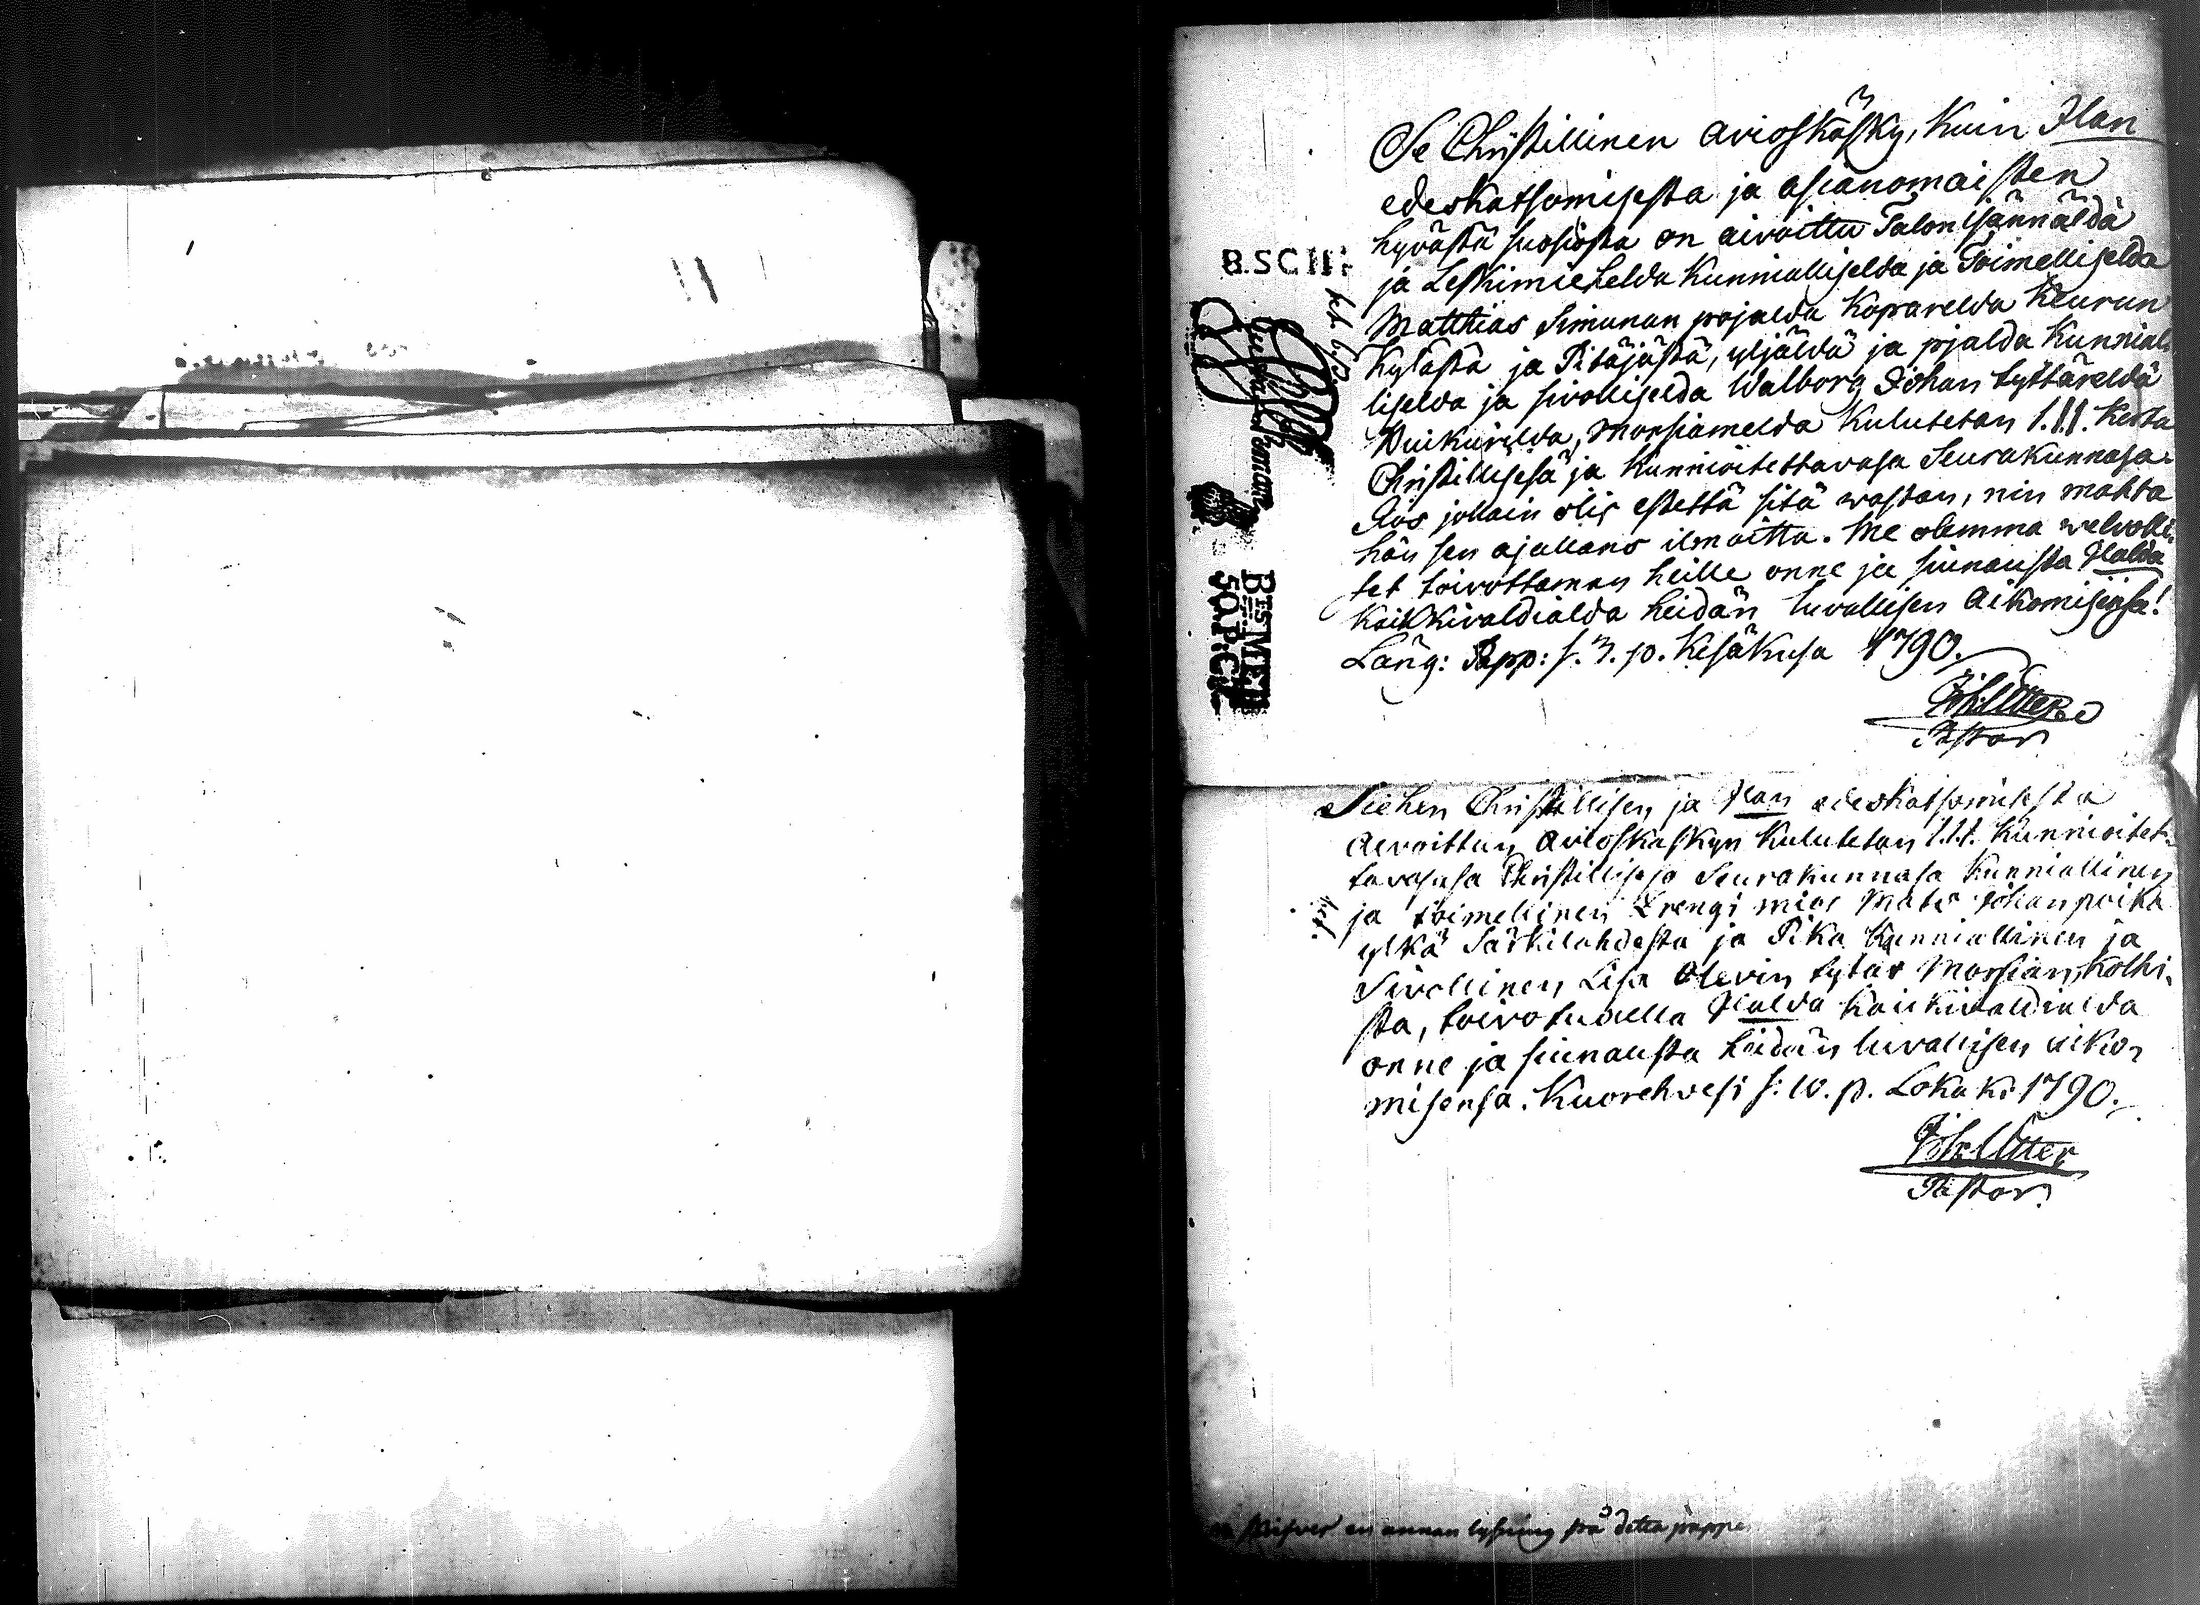 Se Christillinen avioskäsky, kuin Ilan
edeskatsomisesta ja asianomaisten
hyvästä suosiosta on aivoittu Talon isännäldä
ja Leskimieheldä kunnialliselda ja Toimelliselda
Matthias Simunan pojalda Koparelda Keurun
Kylästä ja Pitäjästä, yljäldä ja pjalda kunnial
liselda ja sivolliselda Walborg Johan tyttäreldä
morsiamelda kulutetan 1. kerta
Christillisesä ja kunnioitettavasa Seurakunnasa.
Jos jollain olis estettä sitä wastan, nin mahta
hän sen ajallans ilmoitta. Me olemma welvolli,
set toivottaman heille onne ja siunausta Ilalda
kaikkivaldialda heidän luvallisen aikomisensa!
Läng: Papp: s. 3. p. Kesäkusa 1790.
Joh. Utter
Pastor
B.SC
BES
50.P:C
Siehen Christillisen ja Ilan edeskatsomisesta
aivoittun avioskäskyn kulutetan 1. kunnioitet-
tavasasa Christillisesä Seurakunnasa kunniallinen
ja toimellinen Drengi mies Mats Johan poika
ylkä Särkilahdesta ja Pika kunniallinen ja
sivollinen Lisa Olevin tytär Morsian Kolhi,
sta, toivotudella Ilalda kaikkivaldialda
onne ja siunausta heidän luvallisen aiko,
misensa. Kuorehvesi s: 10. p. Lokak: 1790.
Joh. Utter
Pastor
skrifver en annan lysning på detta pappe